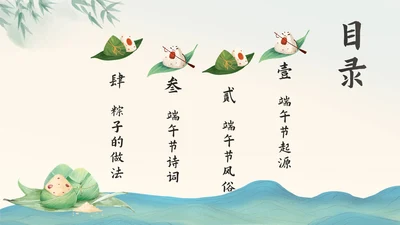 目录
壹 端午节起源
贰 端午节风俗
叁 端午节诗词
肆 粽子的做法